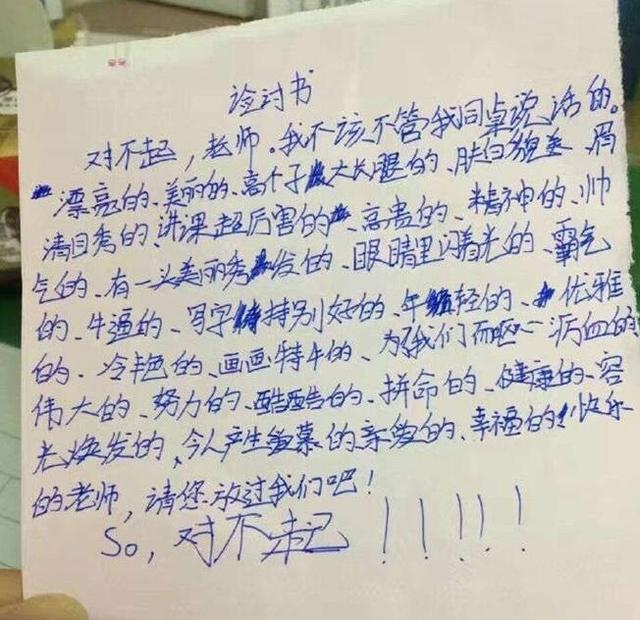 检讨书
对不起，老师。我不该不管我同桌说话的。
漂亮的、美丽的、高个子大长腿的、肤白貌美、眉
清目秀的、讲课超厉害的、高贵的、精神的、帅
气的、有一头美丽秀发的、眼睛里闪着光的、霸气
的、牛逼的、写字特别好的、年轻的、优雅
的、冷艳的、画画特牛的、为了我们而呕心沥血的
伟大的、努力的、酷酷的、拼命的、健康的、容
光焕发的、令人产生爱慕的亲爱的、幸福的快乐
的老师，请您放过我们吧！
So，对不起！！！！！